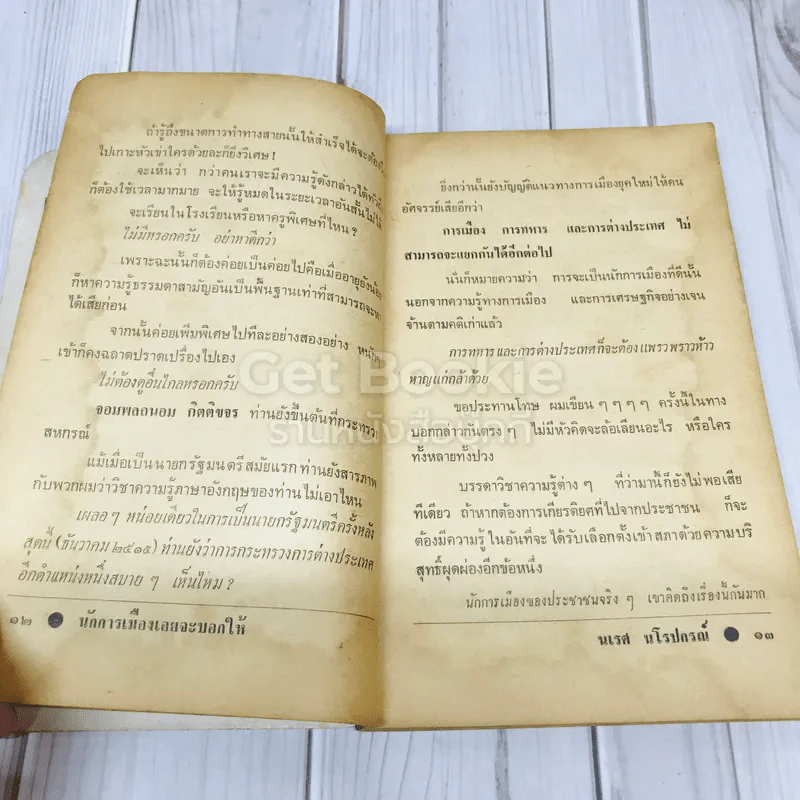 ถ้ารู้ถึงขนาดการทำทางสายนั้นให้สำเร็จได้จะต้อง
ไปเกาะหัวเข่าใครด้วยละก็ยิ่งวิเศษ !
จะเห็นว่า กว่าคนเราจะมีความรู้ดังกล่าวได้
ก็ต้องใช้เวลามากมาย จะให้รู้หมดในระยะเวลาอันสั้นไม่ได้
จะเรียนในโรงเรียนหรือหาครูพิเศษที่ไหน ?
ไม่มีหรอกครับ อย่าหาดีกว่า
เพราะฉะนั้นก็ต้องค่อยเป็นค่อยไปคือเมื่ออายุยังน้อย
ก็หาความรู้ธรรมดาสามัญอันเป็นพื้นฐานเท่าที่สามารถจะหา
ได้เสียก่อน
จากนั้นค่อยเพิ่มพิเศษไปทีละอย่างสองอย่าง หนัก
เข้าก็คงฉลาดปราดเปรื่องไปเอง
ไม่ต้องดูอื่นไกลหรอกครับ
จอมพลถนอม กิตติขจร ท่านยังขึ้นต้นที่กระทรวง
สหกรณ์
แม้เมื่อเป็นนายกรัฐมนตรีสมัยแรก ท่านยังสารภาพ
กับพวกผมว่าวิชาความรู้ภาษาอังกฤษของท่านไม่เอาไหน
เผลอ ๆ หน่อยเดียวในการเป็นนายกรัฐมนตรีครั้งหลัง
สุดนี้ (ธันวาคม ๒๕๑๕) ท่านยังว่าการกระทรวงการต่างประเทศ
อีกตำแหน่งหนึ่งสบาย ๆ เห็นไหม ?
๑๒ ● นักการเมืองเลยจะบอกให้
ยิ่งกว่านั้นยังบัญญัติแนวทางการเมืองยุคใหม่ให้คน
อัศจรรย์เสียอีกว่า
การเมือง การทหาร และการต่างประเทศ ไม่
สามารถจะแยกกันได้อีกต่อไป
นั่นก็หมายความว่า การจะเป็นนักการเมืองที่ดีนั้น
นอกจากความรู้ทางการเมือง และการเศรษฐกิจอย่างเจน
จ้านตามคติเก่าแล้ว
การทหารและการต่างประเทศก็จะต้องแพรวพราวห้าว
หาญแก่กล้าด้วย
ขอประทานโทษ ผมเขียน ๆ ๆ ๆ ๆ ครั้งนี้ในทาง
บอกกล่าวกันตรง ๆ ไม่มีหัวคิดจะล้อเลียนอะไร หรือใคร
ทั้งหลายทั้งปวง
บรรดาวิชาความรู้ต่าง ๆ ที่ว่ามานี้ก็ยังไม่พอเสีย
ทีเดียว ถ้าหากต้องการเกียรติยศที่ไปจากประชาชน ก็จะ
ต้องมีความรู้ในอันที่จะได้รับเลือกตั้งเข้าสภาด้วยความบริ
สุทธิ์ผุดผ่องอีกข้อหนึ่ง
นักการเมืองของประชาชนจริง ๆ เขาคิดถึงเรื่องนี้กันมาก
นเรศ นโรปกรณ์ ● ๑๓
Get Bookie
ร้านหนังสือเก่า